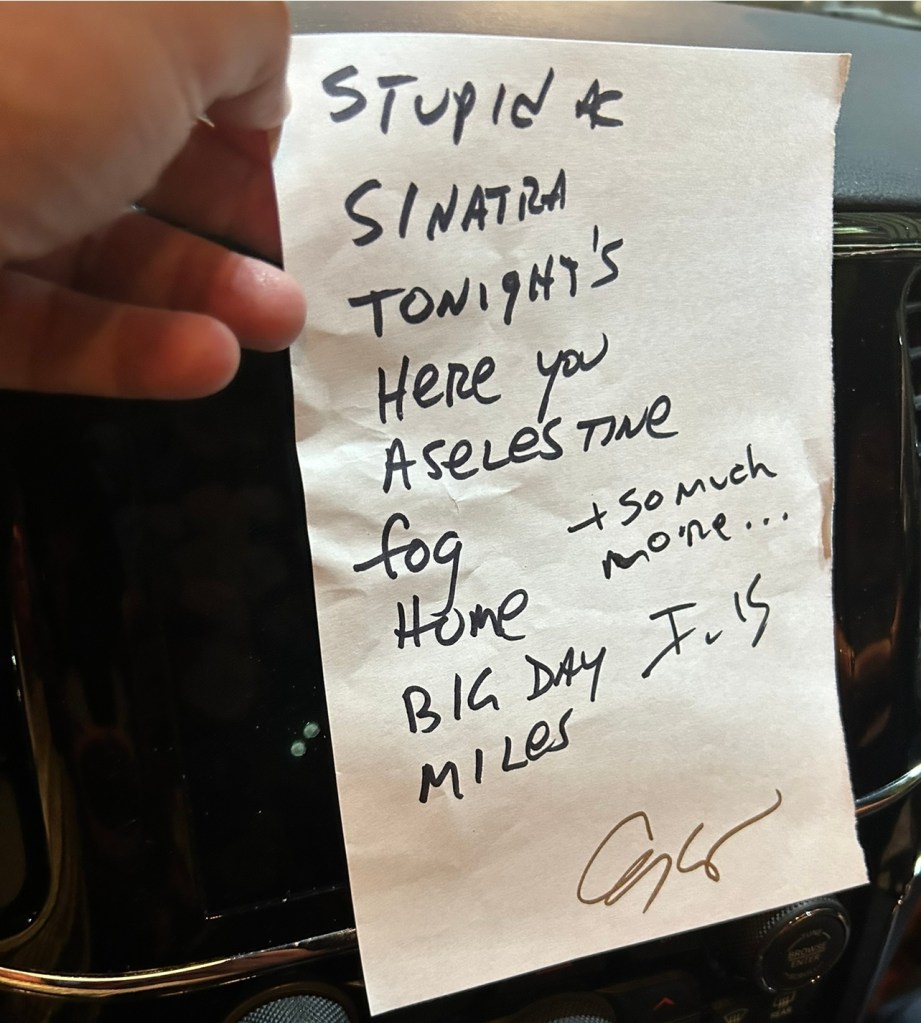 STUPID AC
SINATRA
TONIGHT'S
HERE YOU
ASELESTINE
fog
+ SO MUCH
MORE...
HOME
BIG DAY
MILES